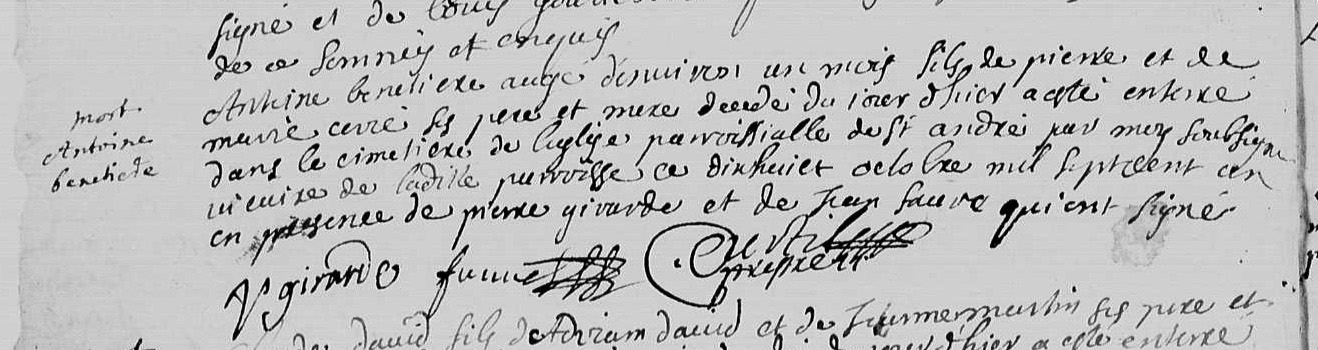 signé et de Louis
de ce sommés et enquis
mort
Antoine
benetiere
Antoine benetiere augé denuiron un mois fils de pierre et de
marie ses pere et mere decedé du iour dhier a esté enterré
dans le cimetiere de leglise parroissialle de st andré par moy soubsigné
vicaire de laditte parroisse ce dixhuict octobre mil sept cent
en presence de pierre girarde et de Jean faure qui ont signé
girarde faure
prestre
david fils dAdriam david et de martin ses pere et
iour dhier a esté enterré